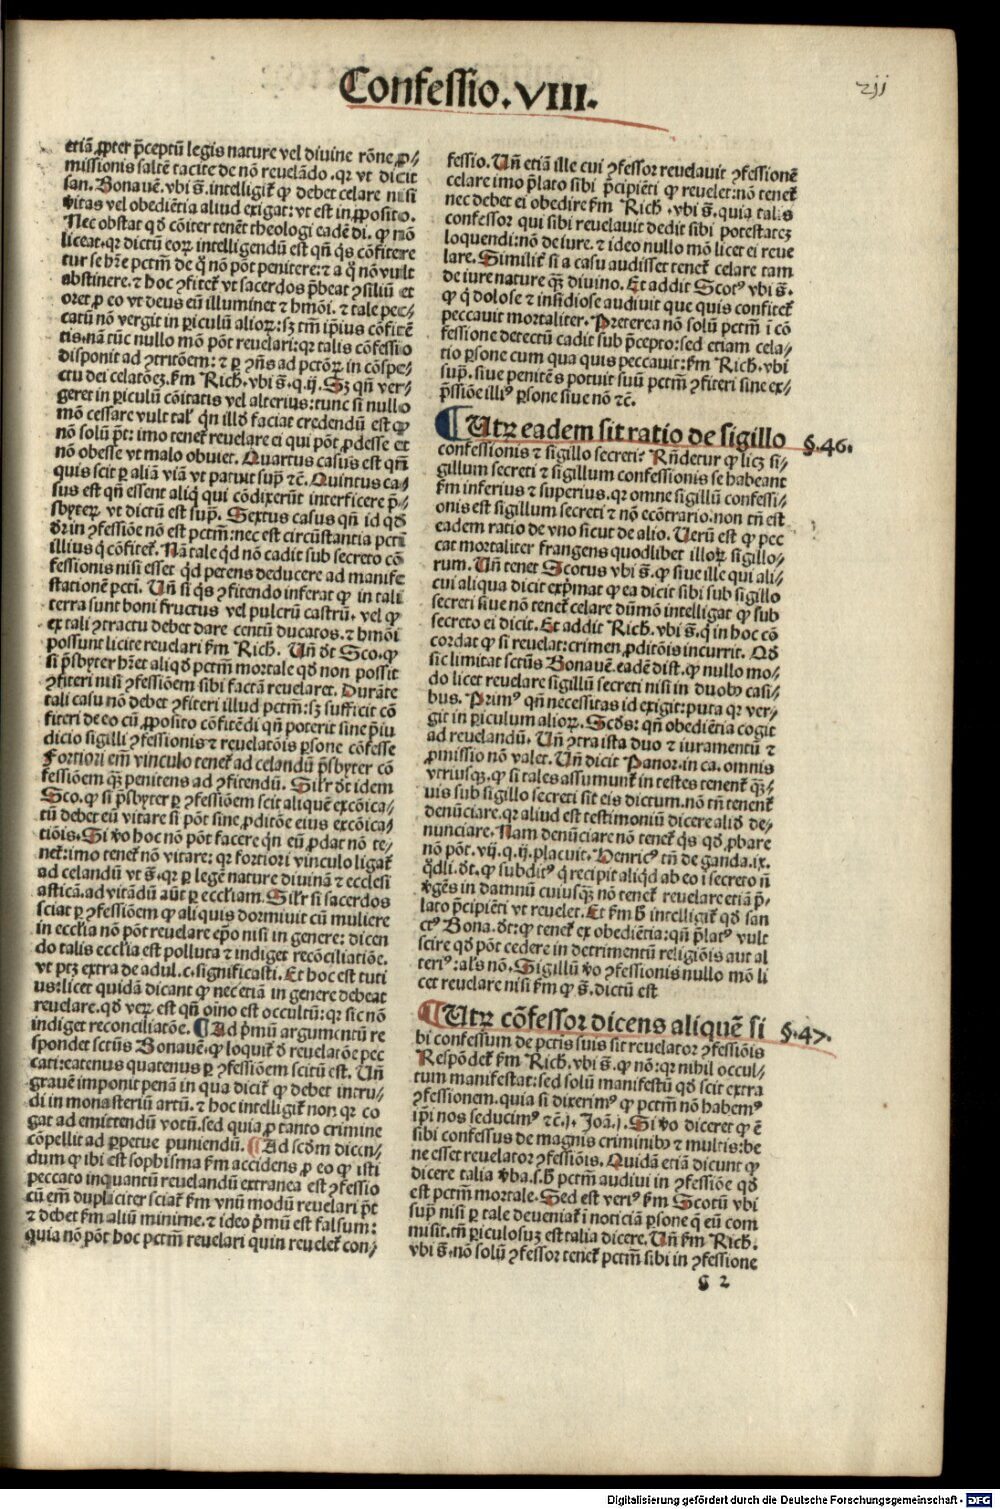 Confessio.VIII.
etiã ꝓpter p̃ceptũ legis nature vel diuine rõne ꝓ⸗
missionis saltẽ tacite de nõ reuelãdo.qꝛ vt dicit
san. Bonauẽ.vbi s̃.intelligit̃ ꝙ debet celare nisi
vitas vel obediẽtia aliud exigat:vt est in ꝓposito.
Nec obstat qď cõiter tenẽt theologi eadẽ di. ꝙ nõ
liceat.qꝛ dictũ eoꝝ intelligendũ est qñ q̃s cõfitere
tur se hr̃e pctm̃ de q̃ nõ põt penitere:⁊ a q̃ nõ vult
abstinere.⁊ hoc ꝯfitet̃ vt sacerdos p̃beat ꝯsiliũ et
oret ꝓ eo vt deus eũ illuminet ⁊ hmõi.⁊ tale pec⸗
catũ nõ vergit in ꝑiculũ alioꝝ:sꝫ tm̃ ipsius cõfitẽ
tis.nã tũc nullo mõ põt reuelari:qꝛ talis cõfessio
disponit ad ꝯtritõem:⁊ ꝑ ꝯñs ad pctõꝝ in cõspe⸗
ctu dei celatõeꝫ.fm̃ Rich.vbi s̃.q.ij. Sꝫ qñ ver⸗
geret in ꝑiculũ cõitatis vel alterius:tunc si nullo
mõ cessare vult tal' qn̄ illď faciat credendũ est ꝙ
nõ solũ p̃t:imo tenet̃ reuelare ei qui põt ꝓdesse et
nõ obesse vt malo obuiet. Quartus casus est qm̃
quis scit ꝑ aliã viã vt patuit sup̃ ⁊c̃. Quintus ca⸗
sus est qñ essent aliq̃ qui cõdixerũt interficere p̃⸗
sbyteꝝ vt dictũ est sup̃. Sextus casus qñ id qď
dr̃ in ꝯfessiõe nõ est pctm̃:nec est circũstantia pcti
illius q̃ cõfitet̃. Nã tale q̃d nõ cadit sub secreto cõ
fessionis nisi esset q̃d petens deducere ad manife
stationẽ pcti. Uñ si q̃s ꝯfitendo inferat ꝙ in tali
terra sunt boni fructus vel pulcrũ castrũ.vel ꝙ
ex tali ꝯtractu debet dare centũ ducatos.⁊ hmõi
possunt licite reuelari fm̃ Rich. Uñ dr̃t Sco.ꝙ
si p̃sbyter hr̃et aliq̃ď pctm̃ mortale qď non possit
ꝯfiteri nisi ꝯfessiõem sibi factã reuelaret. Durãte
tali casu nõ debet ꝯfiteri illud pctm̃:sꝫ sufficit cõ
fiteri de eo cũ ꝓposito cõfitẽdi qñ poterit sine p̃iu
dicio sigilli ꝯfessionis ⁊ reuelatõis ꝑsone cõfesse
Fortiori em̃ vinculo tenet̃ ad celandũ p̃sbyter cõ
fessiõem qꝫ̃ penitens ad ꝯfitendũ. Silr̃ dr̃t idem
Sco.ꝙ si p̃sbyter ꝑ ꝯfessiõem scit aliquẽ excõica⸗
tũ debet eũ vitare si põt sine ꝓditõe eius excõica⸗
tiõis. Si vo hoc nõ põt facere qn̄ eũ ꝓdat nõ te⸗
net̃:imo tenet̃ nõ vitare:qꝛ fortiori vinculo ligat̃
ad celandũ vt s̃.qꝛ ꝑ legẽ nature diuinã ⁊ ecclesi
asticã.ad vitãdũ aũt ꝑ eccliam. Silr̃ si sacerdos
sciat ꝑ ꝯfessiõem ꝙ aliquis dormiuit cũ muliere
in ecclia nõ põt reuelare ep̃o nisi in genere:dicen
do talis ecclia est polluta ⁊ indiget recõciliatiõe.
vt ptꝫ extra de adul.c.significasti. Et hoc est tuti
us:licet quidã dicant ꝙ nec etiã in genere debeat
reuelare.qď veꝝ est qñ oĩno est occultũ:qꝛ sic nõ
indiget reconciliatõe. ¶ Ad p̃mũ argumentũ re
spondet sctũs Bonauẽ.ꝙ loquit̃ ď reuelatõe pec
cati:eatenus quatenus ꝑ ꝯfessiõem scitũ est. Uñ
grauẽ imponit penã in qua dicit̃ ꝙ debet intru⸗
di in monasteriũ artũ.⁊ hoc intelligit̃ non qꝛ co
gat ad emittendũ votũ.sed quia ꝓ tanto crimine
cõpellit ad ꝑpetue puniendũ. ¶ Ad scďm dicen⸗
dum ꝙ ibi est sophisma fm̃ accidens ꝓ eo ꝙ isti
peccato inquantũ reuelandũ extranea est ꝯfessio
cũ em̃ dupliciter sciat̃ fm̃ vnũ modũ reuelari p̃t
⁊ debet fm̃ aliũ minime.⁊ ideo p̃mũ est falsum:
quia nõ põt hoc pctm̃ reuelari quin reuelet̃ con⸗
fessio. Uñ etiã ille cui ꝯfessor reuelauit ꝯfessionẽ
celare imo p̃lato sibi p̃cipiẽti ꝙ reuelet:nõ tenet̃
nec debet ei obedire fm̃ Rich.vbi s̃.quia talis
confessor qui sibi reuelauit dedit sibi potestateꝫ
loquendi:nõ de iure.⁊ ideo nullo mõ licet ei reue
lare. Similit̃ si a casu audisset tenet̃ celare tam
de iure nature qꝫ̃ diuino. Et addit Scotꝰ vbi s̃.
ꝙ q̃ dolose ⁊ insidiose audiuit que quis confitet̃
peccauit mortaliter. Preterea nõ solũ pctm̃ i cõ
fessione detectũ cadit sub p̃cepto:sed etiam cela⸗
tio ꝑsone cum qua quis peccauit:fm̃ Rich.vbi
sup̃.siue penitẽs potuit suũ pctm̃ ꝯfiteri sine ex⸗
p̃ssiõe illiꝰ ꝑsone siue nõ ⁊c̃.
¶ Utꝝ eadem sit ratio de sigillo §.46.
confessionis ⁊ sigillo secreti? Rñdetur ꝙ licꝫ si⸗
gillum secreti ⁊ sigillum confessionis se habeant
fm̃ inferius ⁊ superius.qꝛ omne sigillũ confessi⸗
onis est sigillum secreti ⁊ nõ ecõtrario.non tñ est
eadem ratio de vno sicut de alio. Uerũ est ꝙ pec
cat mortaliter frangens quodlibet illoꝝ sigillo⸗
rum. Uñ tenet Scotus vbi s̃.ꝙ siue ille qui ali⸗
cui aliqua dicit exp̃mat ꝙ ea dicit sibi sub sigillo
secreti siue nõ tenet̃ celare dũmõ intelligat ꝙ sub
secreto ei dicit. Et addit Rich.vbi s̃.q̃ in hoc cõ
cordat ꝙ si reuelat:crimen ꝓditõis incurrit. Qď
sic limitat sctũs Bonauẽ.eadẽ dist.ꝙ nullo mo⸗
do licet reuelare sigillũ secreti nisi in duobꝰ casi⸗
bus. Primꝰ qñ necessitas id exigit:puta qꝛ ver⸗
git in ꝑiculum alioꝝ. Scďs:qñ obediẽtia cogit
ad reuelandũ. Uñ ꝯtra ista duo ⁊ iuramentũ ⁊
ꝓmissio nõ valet. Uñ dicit Panor.in ca.omnis
vtriusqꝫ.ꝙ si tales assumunt̃ in testes tenent̃ qꝫ̃⸗
uis sub sigillo secreti sit eis dictum.nõ tñ tenent̃
denũciare.qꝛ aliud est testimoniũ dicere aliď de⸗
nunciare. Nam denũciare nõ tenet̃ q̃s qď ꝓbare
nõ põt.vij.q.ij.placuit. Henricꝰ tñ de ganda.ix.
q̃dli.dr̃t.ꝙ subditꝰ q̃ recipit aliq̃d ab eo i secreto ñ
vgẽs in damnũ cuiusqꝫ̃ nõ tenet̃ reuelare etiã p̃⸗
lato p̃cipiẽti vt reuelet. Et fm̃ h̃ intelligit̃ qď san
ctꝰ Bona.dr̃t:ꝙ tenet̃ ex obediẽtia:qñ p̃latꝰ vult
scire qď põt cedere in detrimentũ religiõis aut al
teriꝰ:al's nõ. Sigillũ vo ꝯfessionis nullo mõ li
cet reuelare nisi fm̃ ꝙ s̃.dictũ est
¶ Utꝝ cõfessor dicens aliquẽ si §.47.
bi confessum de pctis suis sit reuelator ꝯfessiõis
Respõdet̃ fm̃ Rich.vbi s̃.ꝙ nõ:qꝛ nihil occul⸗
tum manifestat:sed solũ manifestũ qď scit extra
ꝯfessionem.quia si dixerimꝰ ꝙ pctm̃ nõ habemꝰ
ip̃i nos seducimꝰ ⁊c̃.j. Joã.j. Si vo diceret ꝙ ẽ
sibi confessus de magnis criminibꝰ ⁊ multis:be
ne esset reuelator ꝯfessiõis. Quidã etiã dicunt ꝙ
dicere talia vba.s.h̃ pctm̃ audiui in ꝯfessiõe qď
est pctm̃ mortale. Sed est veriꝰ fm̃ Scotũ vbi
sup̃ nisi ꝑ tale deueniat̃ i noticiã ꝑsone q̃ eũ com
misit.tñ ꝑiculosuꝫ est talia dicere. Uñ fm̃ Rich.
vbi s̃.nõ solũ ꝯfessor tenet̃ pctm̃ sibi in ꝯfessione
g 2
Digitalisierung gefördert durch die Deutsche Forschungsgemeinschaft - DFG